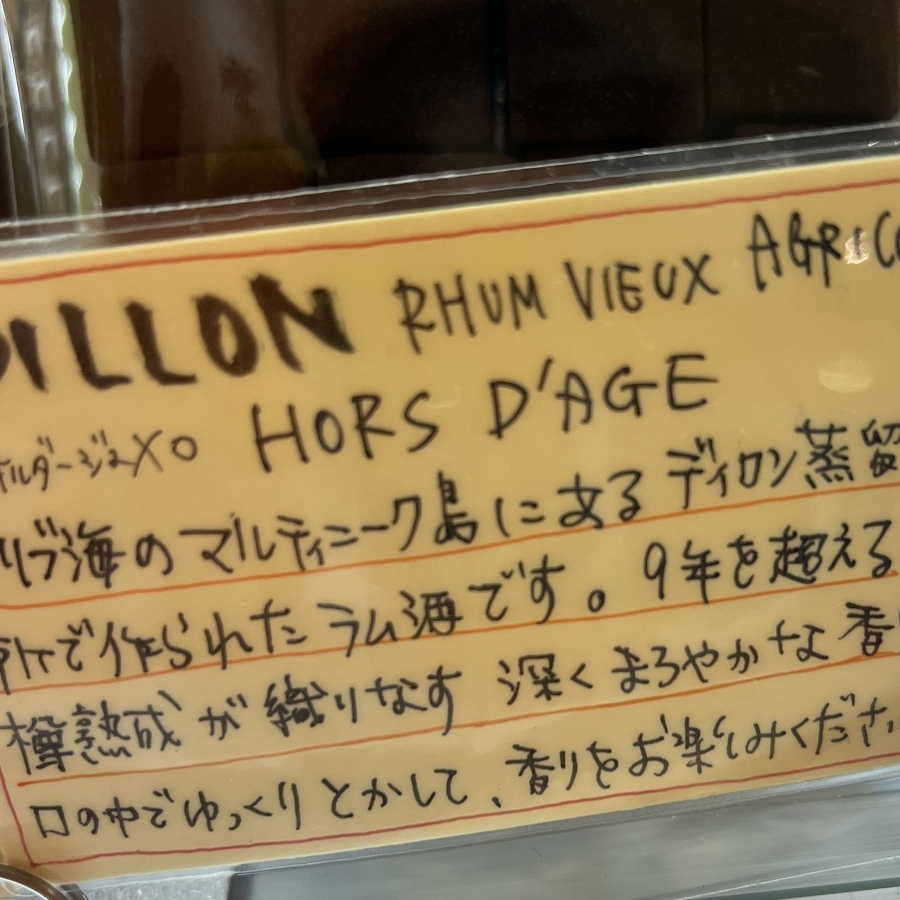 DILLON RHUM VIEUX AGRICO
HORS D'AGE
オルダージュXO
リブ海のマルティニーク島にあるディロン蒸留
所で作られたラム酒です。9年を超える
樽熟成が織りなす 深くまろやかな香り
口の中でゆっくりとかして、香りをお楽しみくださ